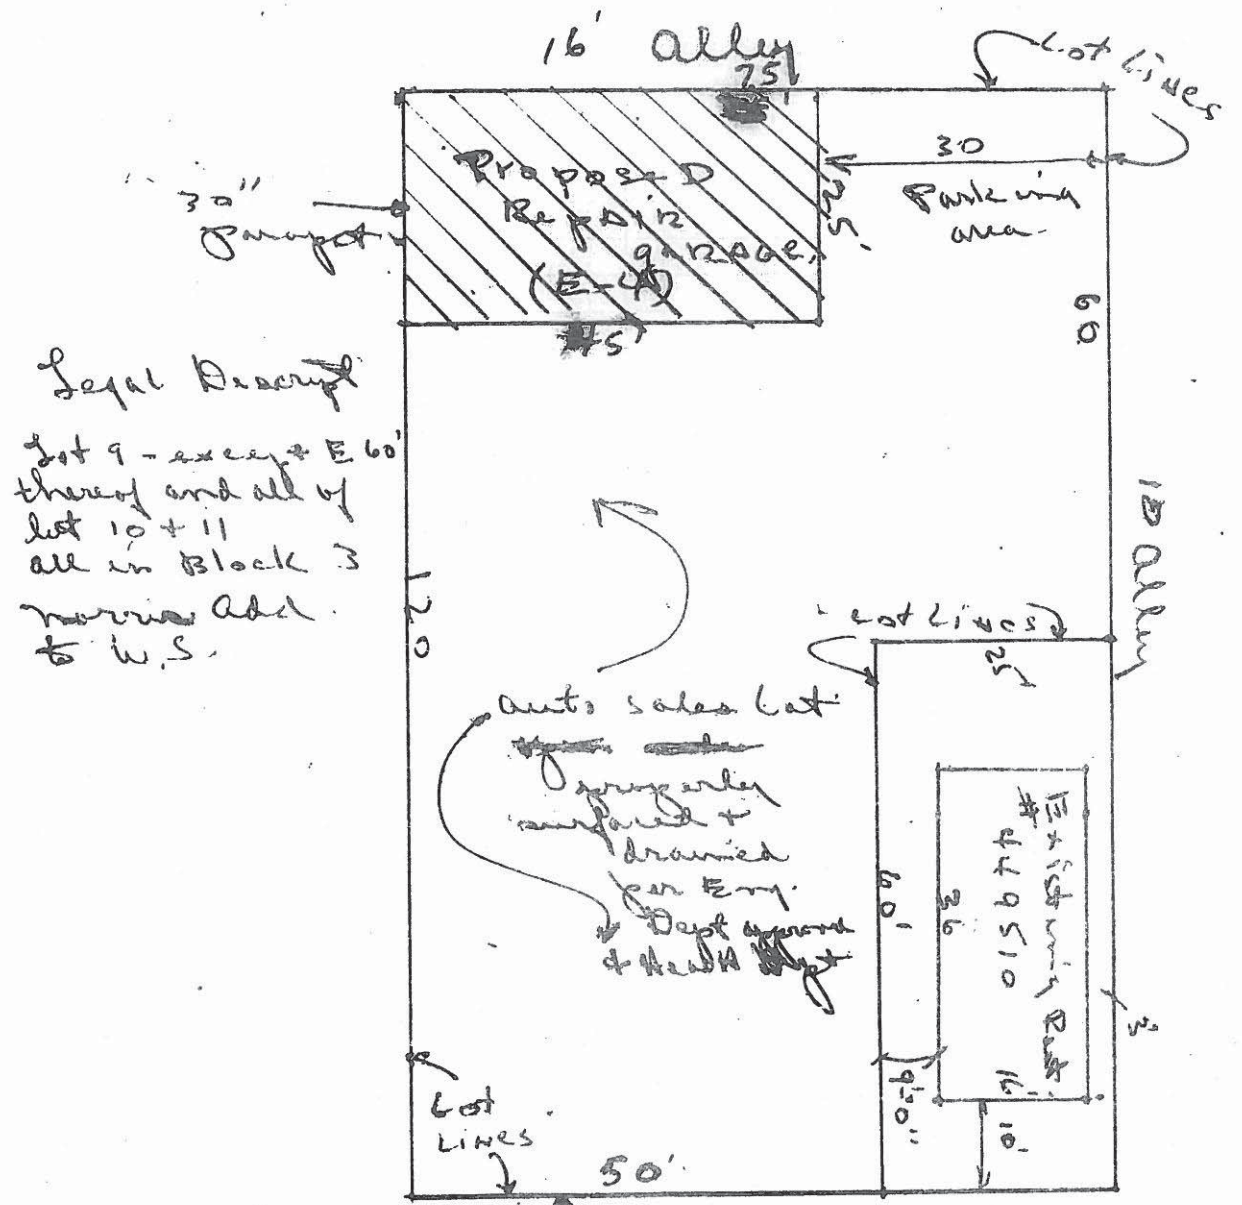 16' Alley
75'
Lot Lines
30
Parking
area.
30"
Parapet
Proposed
Repair
garage,
(E-4)
25'
45'
60
Legal Descript
Lot 9 - except E 60'
thereof and all of
lot 10 + 11
all in Block 3
Norris Add.
to W.S.
120
10 Alley
Lot Lines
25
auto sales Lot
properly
surfaced +
drained
per Eng.
Dept approval
+ Health Dept
60'
36
Existing Rest.
#
16'
3'
9'-0"
10'
Lot
Lines
50'